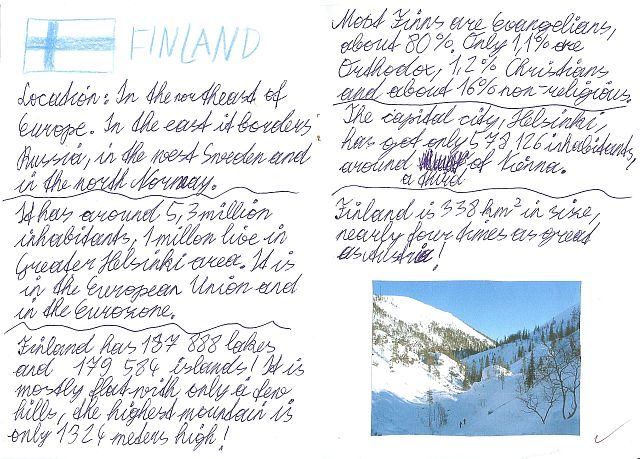 FINLAND
Location: In the northeast of
Europe. In the east it borders
Russia, in the west Sweden and
in the north Norway.
It has around 5,3 million
inhabitants, 1 millon live in
Greater Helsinki area. It is
in the European Union and
in the Eurozone.
Finland has 187 888 lakes
and 179 584 islands! It is
mostly flat with only a few
hills, the highest mountain is
only 1324 meters high!
Most Finns are Evangelians,
about 80%. Only 1,1% are
Orthodox, 1,2% Christians
and about 16% non-religious.
The capital city, Helsinki
has got only 578 126 inhabitants,
around a third of Vienna.
Finland is 338 km² in size,
nearly four times as great
as Austria!